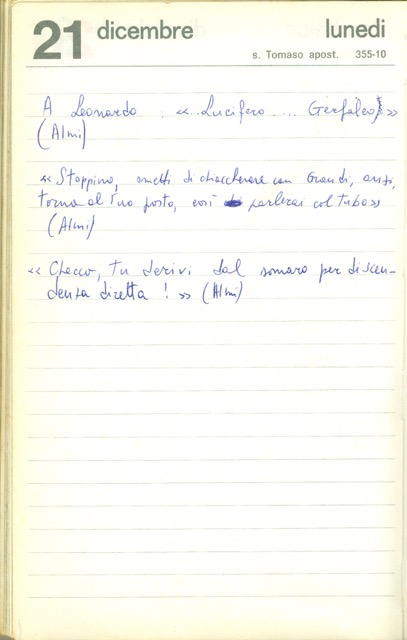 21 dicembre lunedì
s. Tomaso apost. 355-10
A Leonardo : «...Lucifero ... Gerfalco!»
(Almi)
«Stoppino, smetti di chiaccherare con Grandi, anzi,
torna al tuo posto, così parlerai col tubo»
(Almi)
«Checco, tu derivi dal somaro per discen-
denza diretta ! » (Almi)